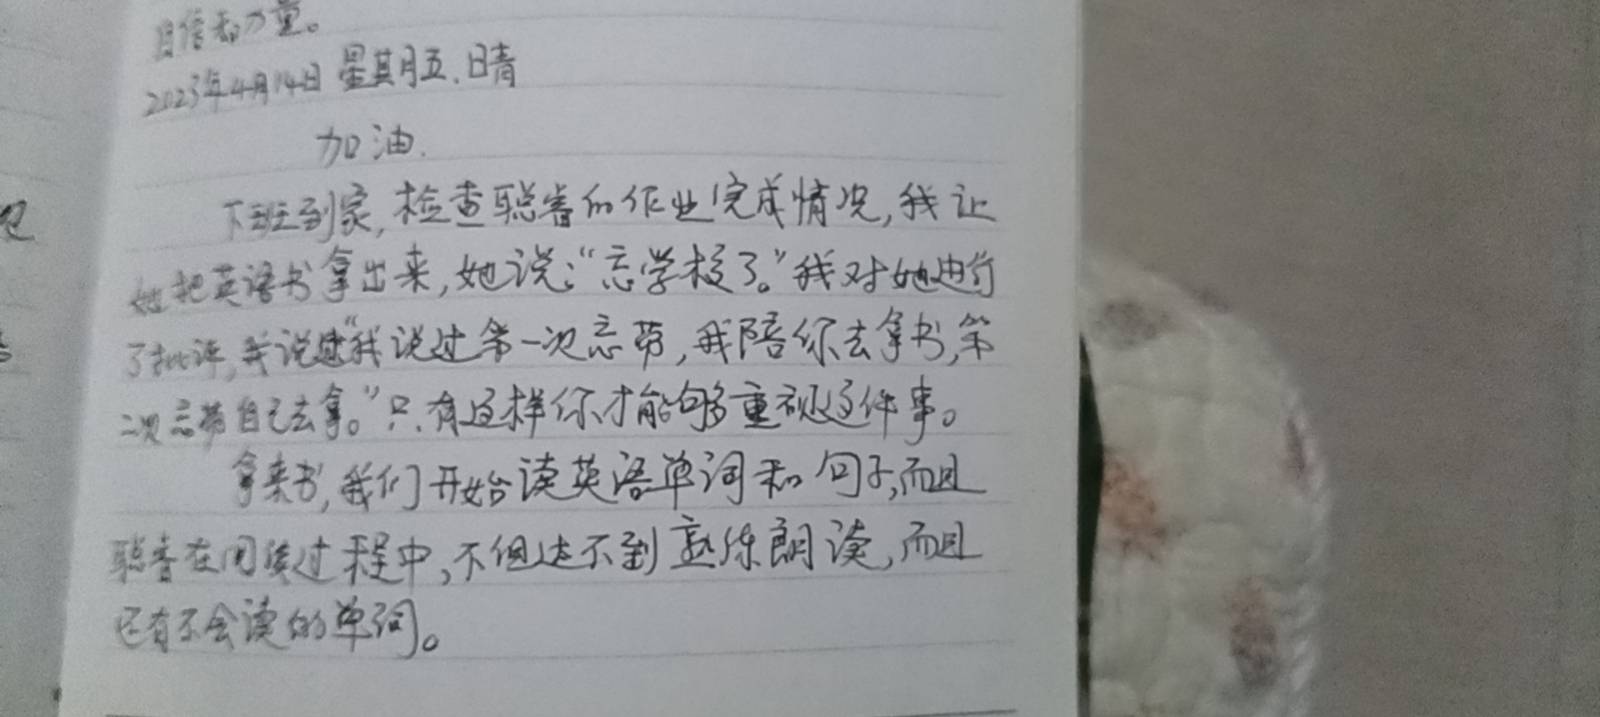 自信和力量。
2023年4月14日 星期五.晴
加油.
下班到家,检查聪睿的作业完成情况,我让
她把英语书拿出来,她说:“忘学校了。”我对她进行
了批评,我说“我说过第一次忘带,我陪你去拿书,第
二次忘带自己去拿。”只有这样你才能够重视这件事。
拿来书,我们开始读英语单词和句子,而且
聪睿在阅读过程中,不但达不到熟练朗读,而且
还有不会读的单词。